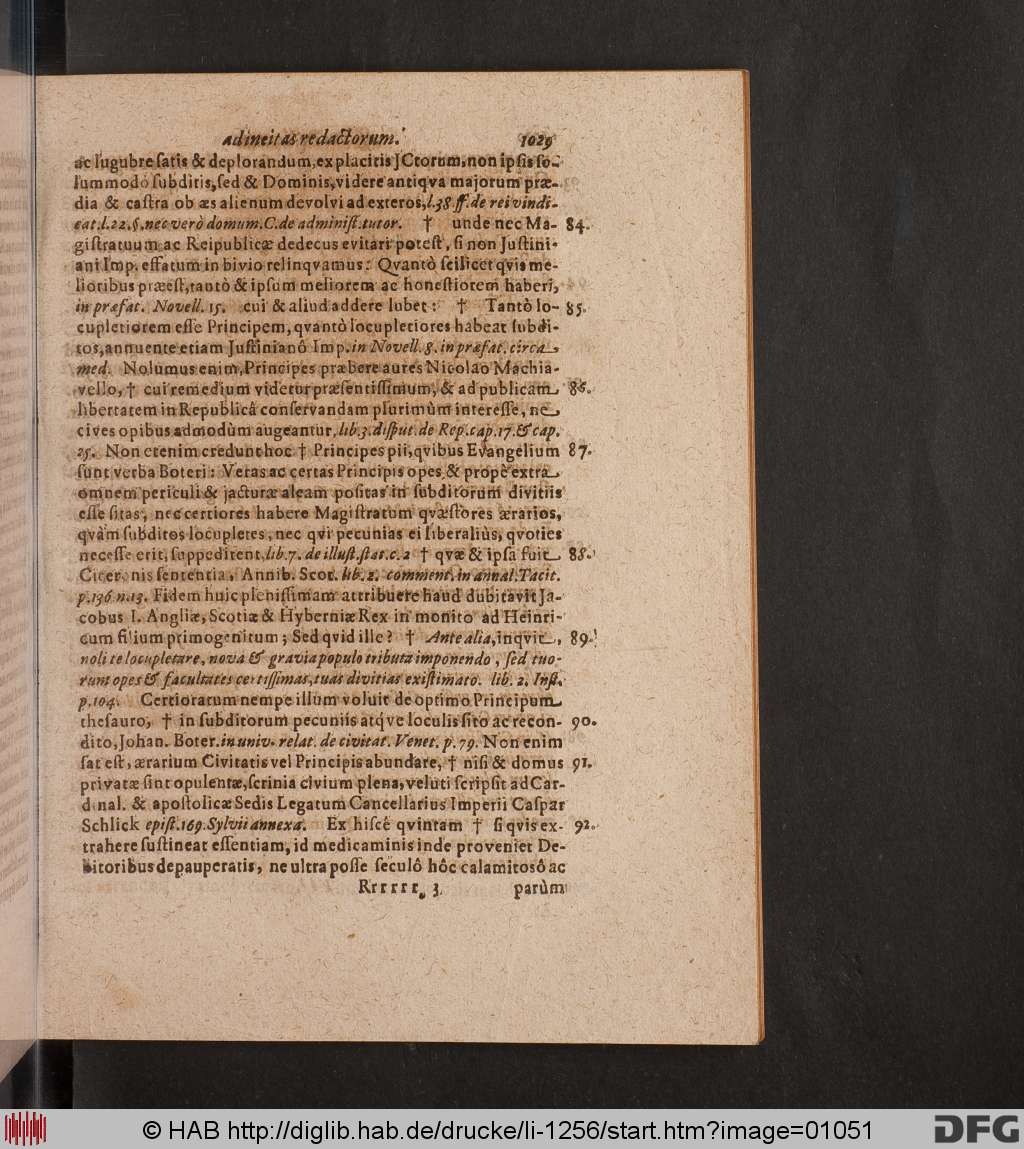 ad incitas redactorum. 1029
ac lugubre satis & deplorandum, ex placitis JCtorum, non ipsis so-
lummodò subditis, sed & Dominis, videre antiqva majorum præ-
dia & castra ob æs alienum devolvi ad exteros, l. 38. ff. de rei vindi-
cat. l. 22. §. nec verò domum. C. de administ. tutor. † unde nec Ma- 84.
gistratuum ac Reipublicæ dedecus evitari potest, si non Justini-
ani Imp. effatum in bivio relinqvamus: Qvantò scilicet qvis me-
lioribus præest, tantò & ipsum meliorem ac honestiorem haberi,
in præfat. Novell. 15. cui & aliud addere lubet: † Tantò lo- 85.
cupletiorem esse Principem, qvantò locupletiores habeat subdi-
tos, annuente etiam Justinianô Imp. in Novell. 8. in præfat. circa
med. Nolumus enim, Principes præbere aures Nicolao Machia-
vello, † cui remedium videtur præsentissimum, & ad publicam 86.
libertatem in Republicâ conservandam plurimùm interesse, ne
cives opibus admodùm augeantur, lib. 3. disput. de Rep. cap. 17. & cap.
25. Non etenim credunt hoc † Principes pii, qvibus Evangelium 87.
sunt verba Boteri: Veras ac certas Principis opes & propè extra
omnem periculi & jacturæ aleam positas in subditorum divitiis
esse sitas, nec certiores habere Magistratum qvæstores ærarios,
qvàm subditos locupletes, nec qvi pecunias ei liberaliùs, qvoties
necesse erit, suppeditent, lib. 7. de illust. stat. c. 2 † qvæ & ipsa fuit 88.
Ciceronis sententia, Annib. Scot. lib. 2. comment. in annal. Tacit.
p. 136 n. 13. Fidem huic plenissimam attribuere haud dubitavit Ja-
cobus I. Angliæ, Scotiæ & Hyberniæ Rex in monito ad Heinri-
cum filium primogenitum; Sed qvid ille? † Ante alia, inqvit, 89.
noli te locupletare, nova & gravia populo tributa imponendo, sed tuo-
rum opes & facultates certissimas, tuas divitias existimato. lib. 2. Inst.
p. 104. Certioratum nempe illum voluit de optimo Principum
thesauro, † in subditorum pecuniis atqve loculis sito ac recon- 90.
dito, Johan. Boter. in univ. relat. de civitat. Venet. p. 79. Non enim
sat est, ærarium Civitatis vel Principis abundare, † nisi & domus 91.
privatæ sint opulentæ, scrinia civium plena, veluti scripsit ad Car-
dinal. & apostolicæ Sedis Legatum Cancellarius Imperii Caspar
Schlick epist. 169. Sylvii annexa. Ex hiscê qvintam † si qvis ex- 92.
trahere sustineat essentiam, id medicaminis inde proveniet De-
bitoribus depauperatis, ne ultra posse seculô hôc calamitosô ac
Rrrrrr 3 parùm
© HAB http://diglib.hab.de/drucke/li-1256/start.htm?image=01051
DFG